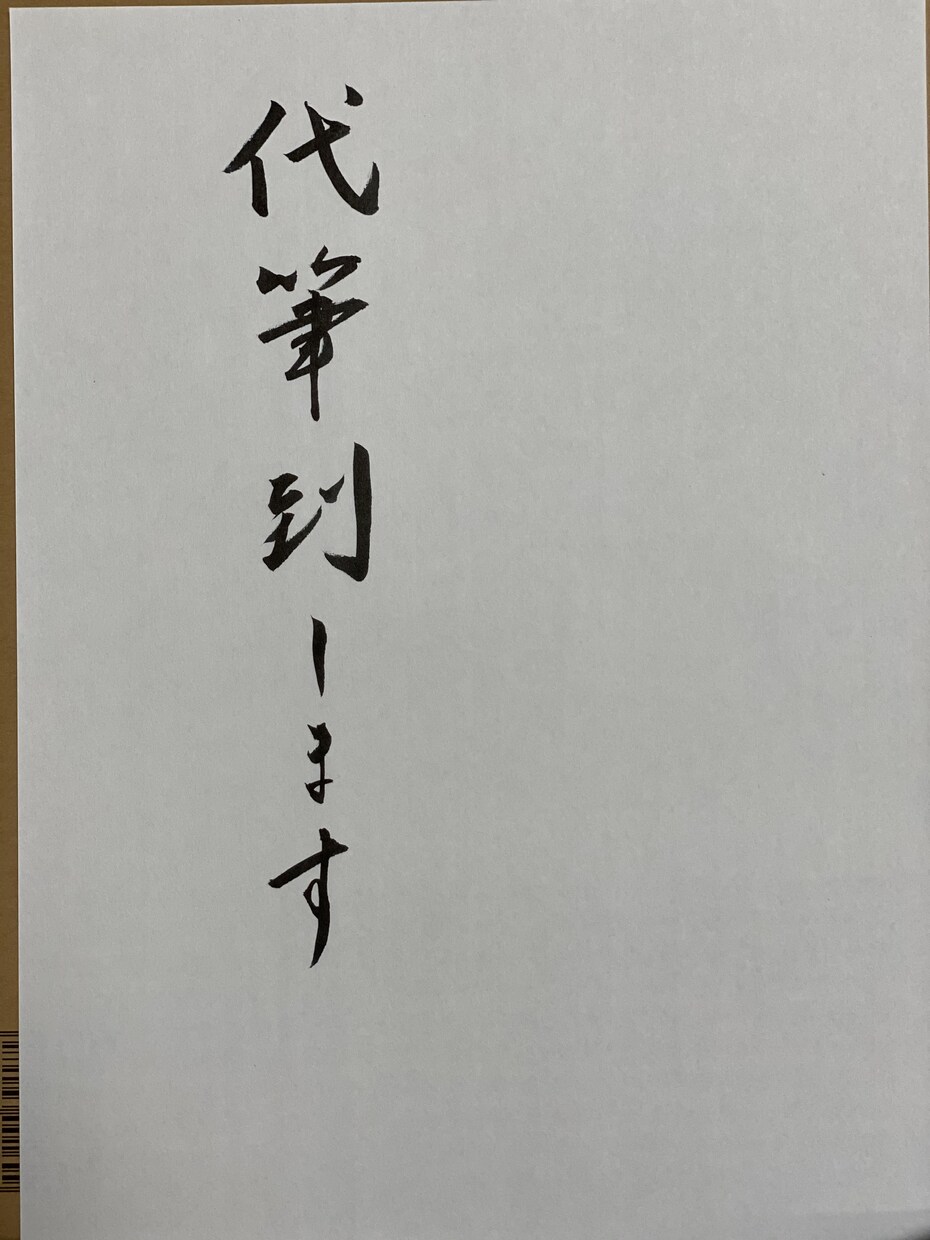 代筆到します